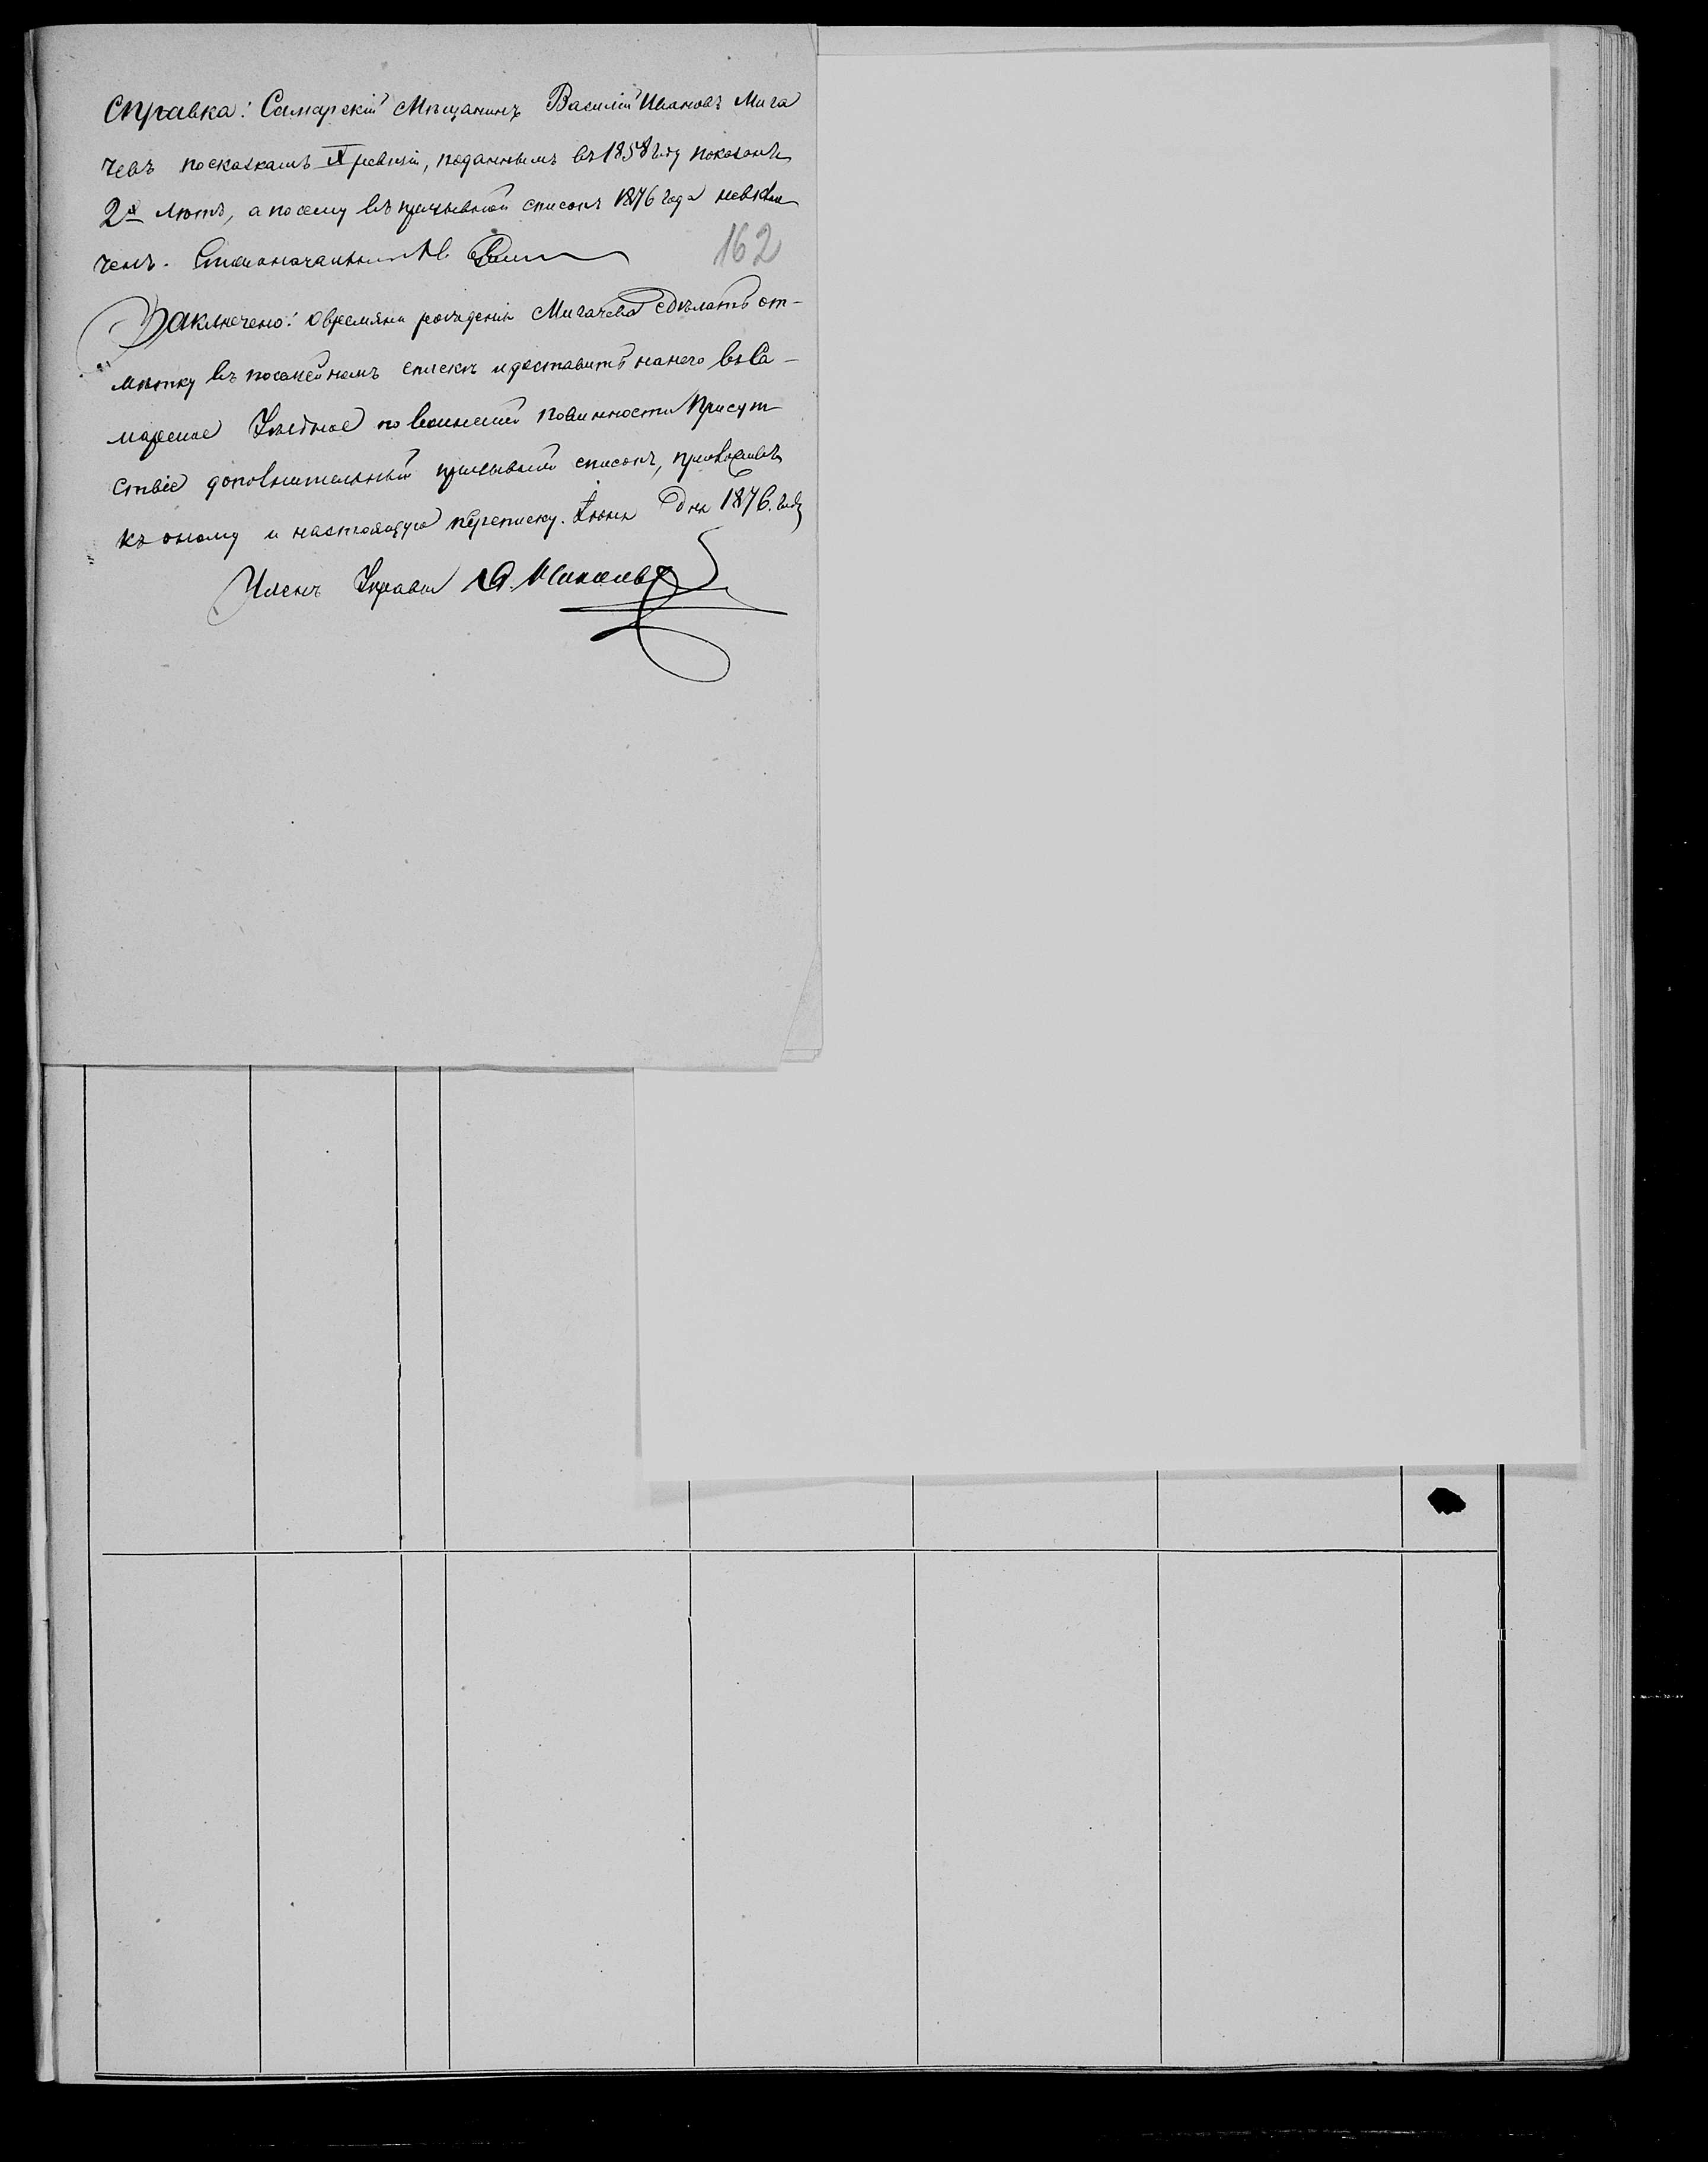 Справка: Самарскій Мѣщанинъ Василій Ивановъ Мига
чевъ посказкамъ X ревизіи, поданнымъ въ 1858 году показанъ
2х лѣтъ, а посему въ призывной списокъ 1876 года невклю
ченъ. Столоначальникъ
162
Заключено: о времяни рожденія Мигачева сдѣлать от-
мѣтку въ посемейномъ спискѣ и доставить нанего въ Са-
марское Уѣздное по воинской повинности Присут
ствіе дополнительный призывной списокъ, приложивъ
къ оному и настоящую переписку. Іюня дня 1876. года
Членъ Управы